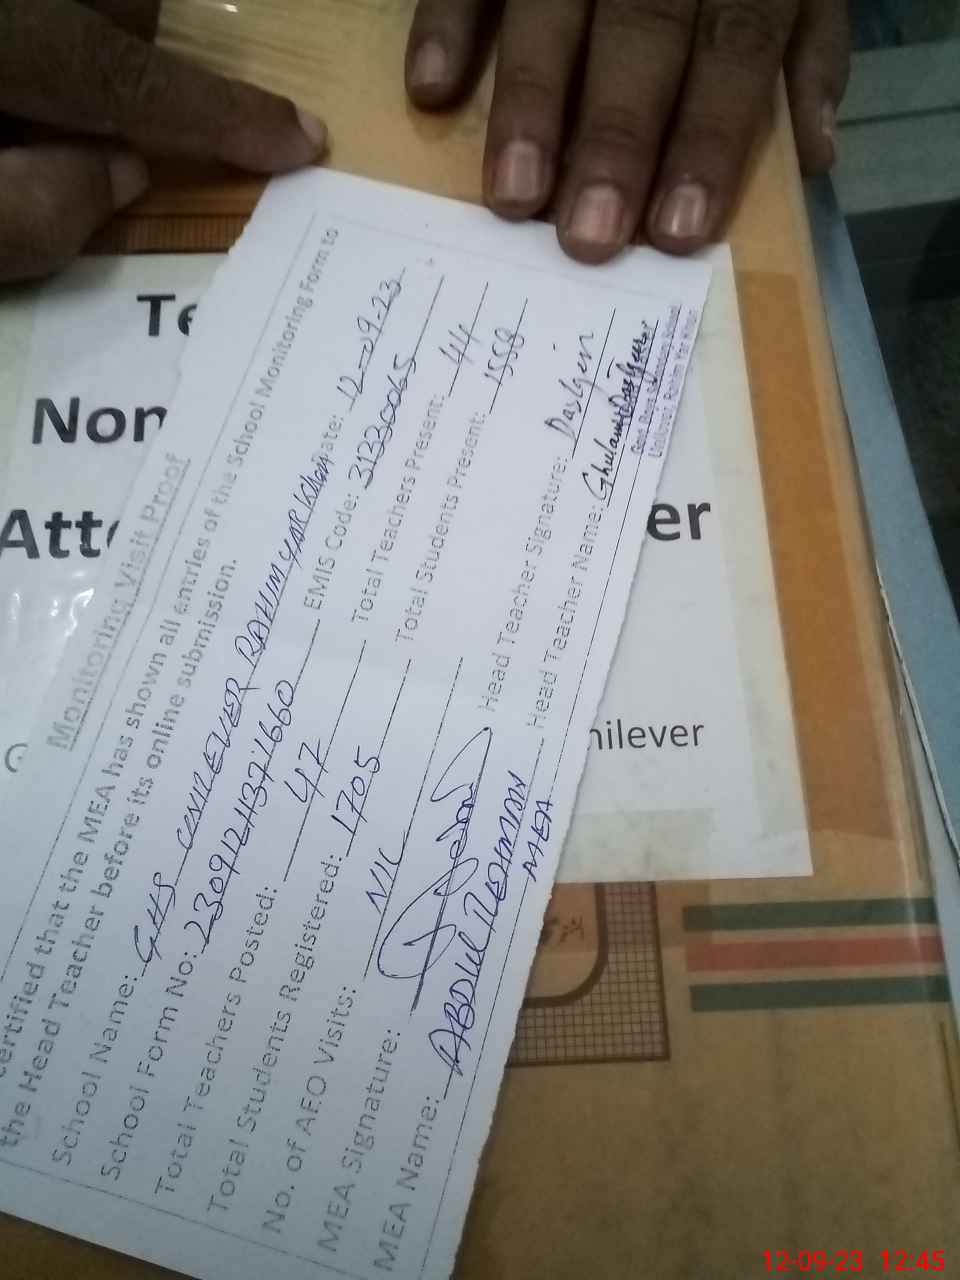 Monitoring Visit Proof
certified that the MEA has shown all entries of the School Monitoring Form to
the Head Teacher before its online submission.
School Name: GHS UNILEVER RAHIM YAR KHAN Date: 12-09-23
School Form No: EMIS Code: 31330065
Total Teachers Posted: 47 Total Teachers Present: 44
Total Students Registered: 1705 Total Students Present: 1558
No. of AEO Visits: NIL
MEA Signature: Head Teacher Signature:
MEA Name: ABDUL REHMAN Head Teacher Name: Ghulam
MEA
Secondary School
Unilever Rahim Yar Khan
Te
Non
Atte
er
nilever
12-09-23 12:45